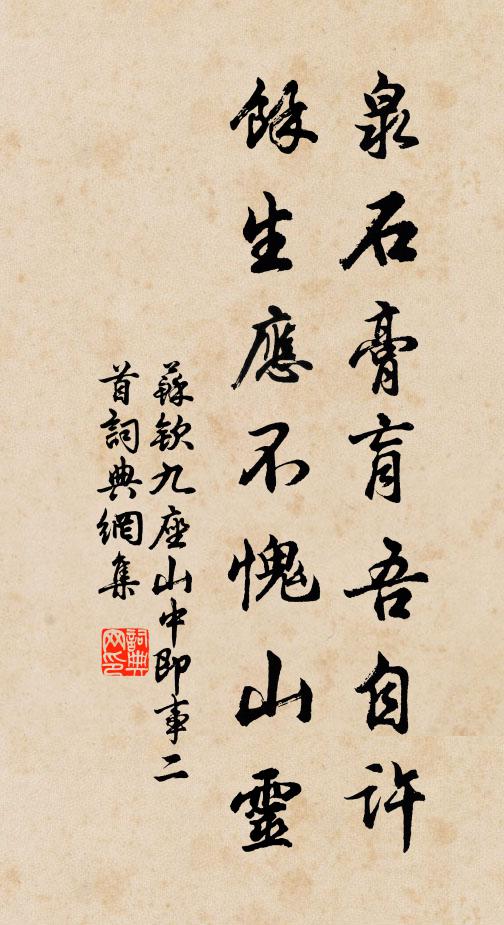 泉石膏肓吾自許
餘生應不愧山靈
蘇欽九座山中即事二
首詞典網集
詞典網印